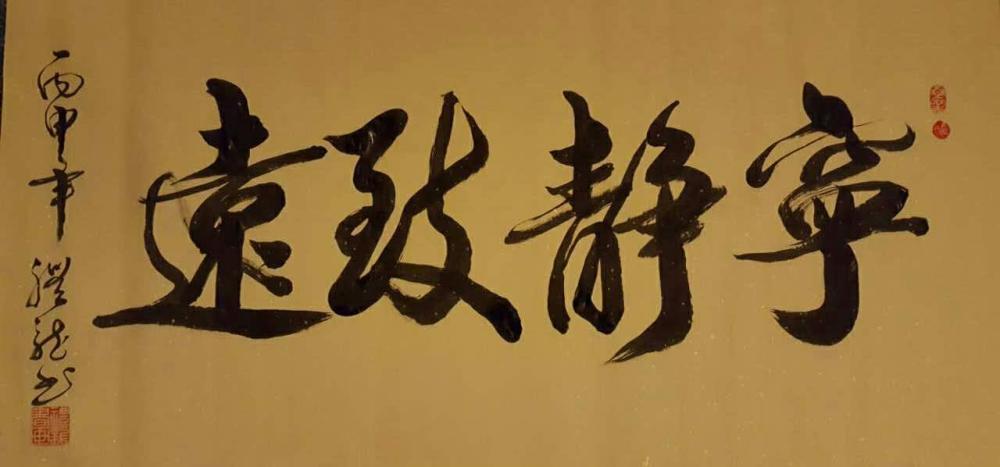 寧静致遠
丙申年
龍书